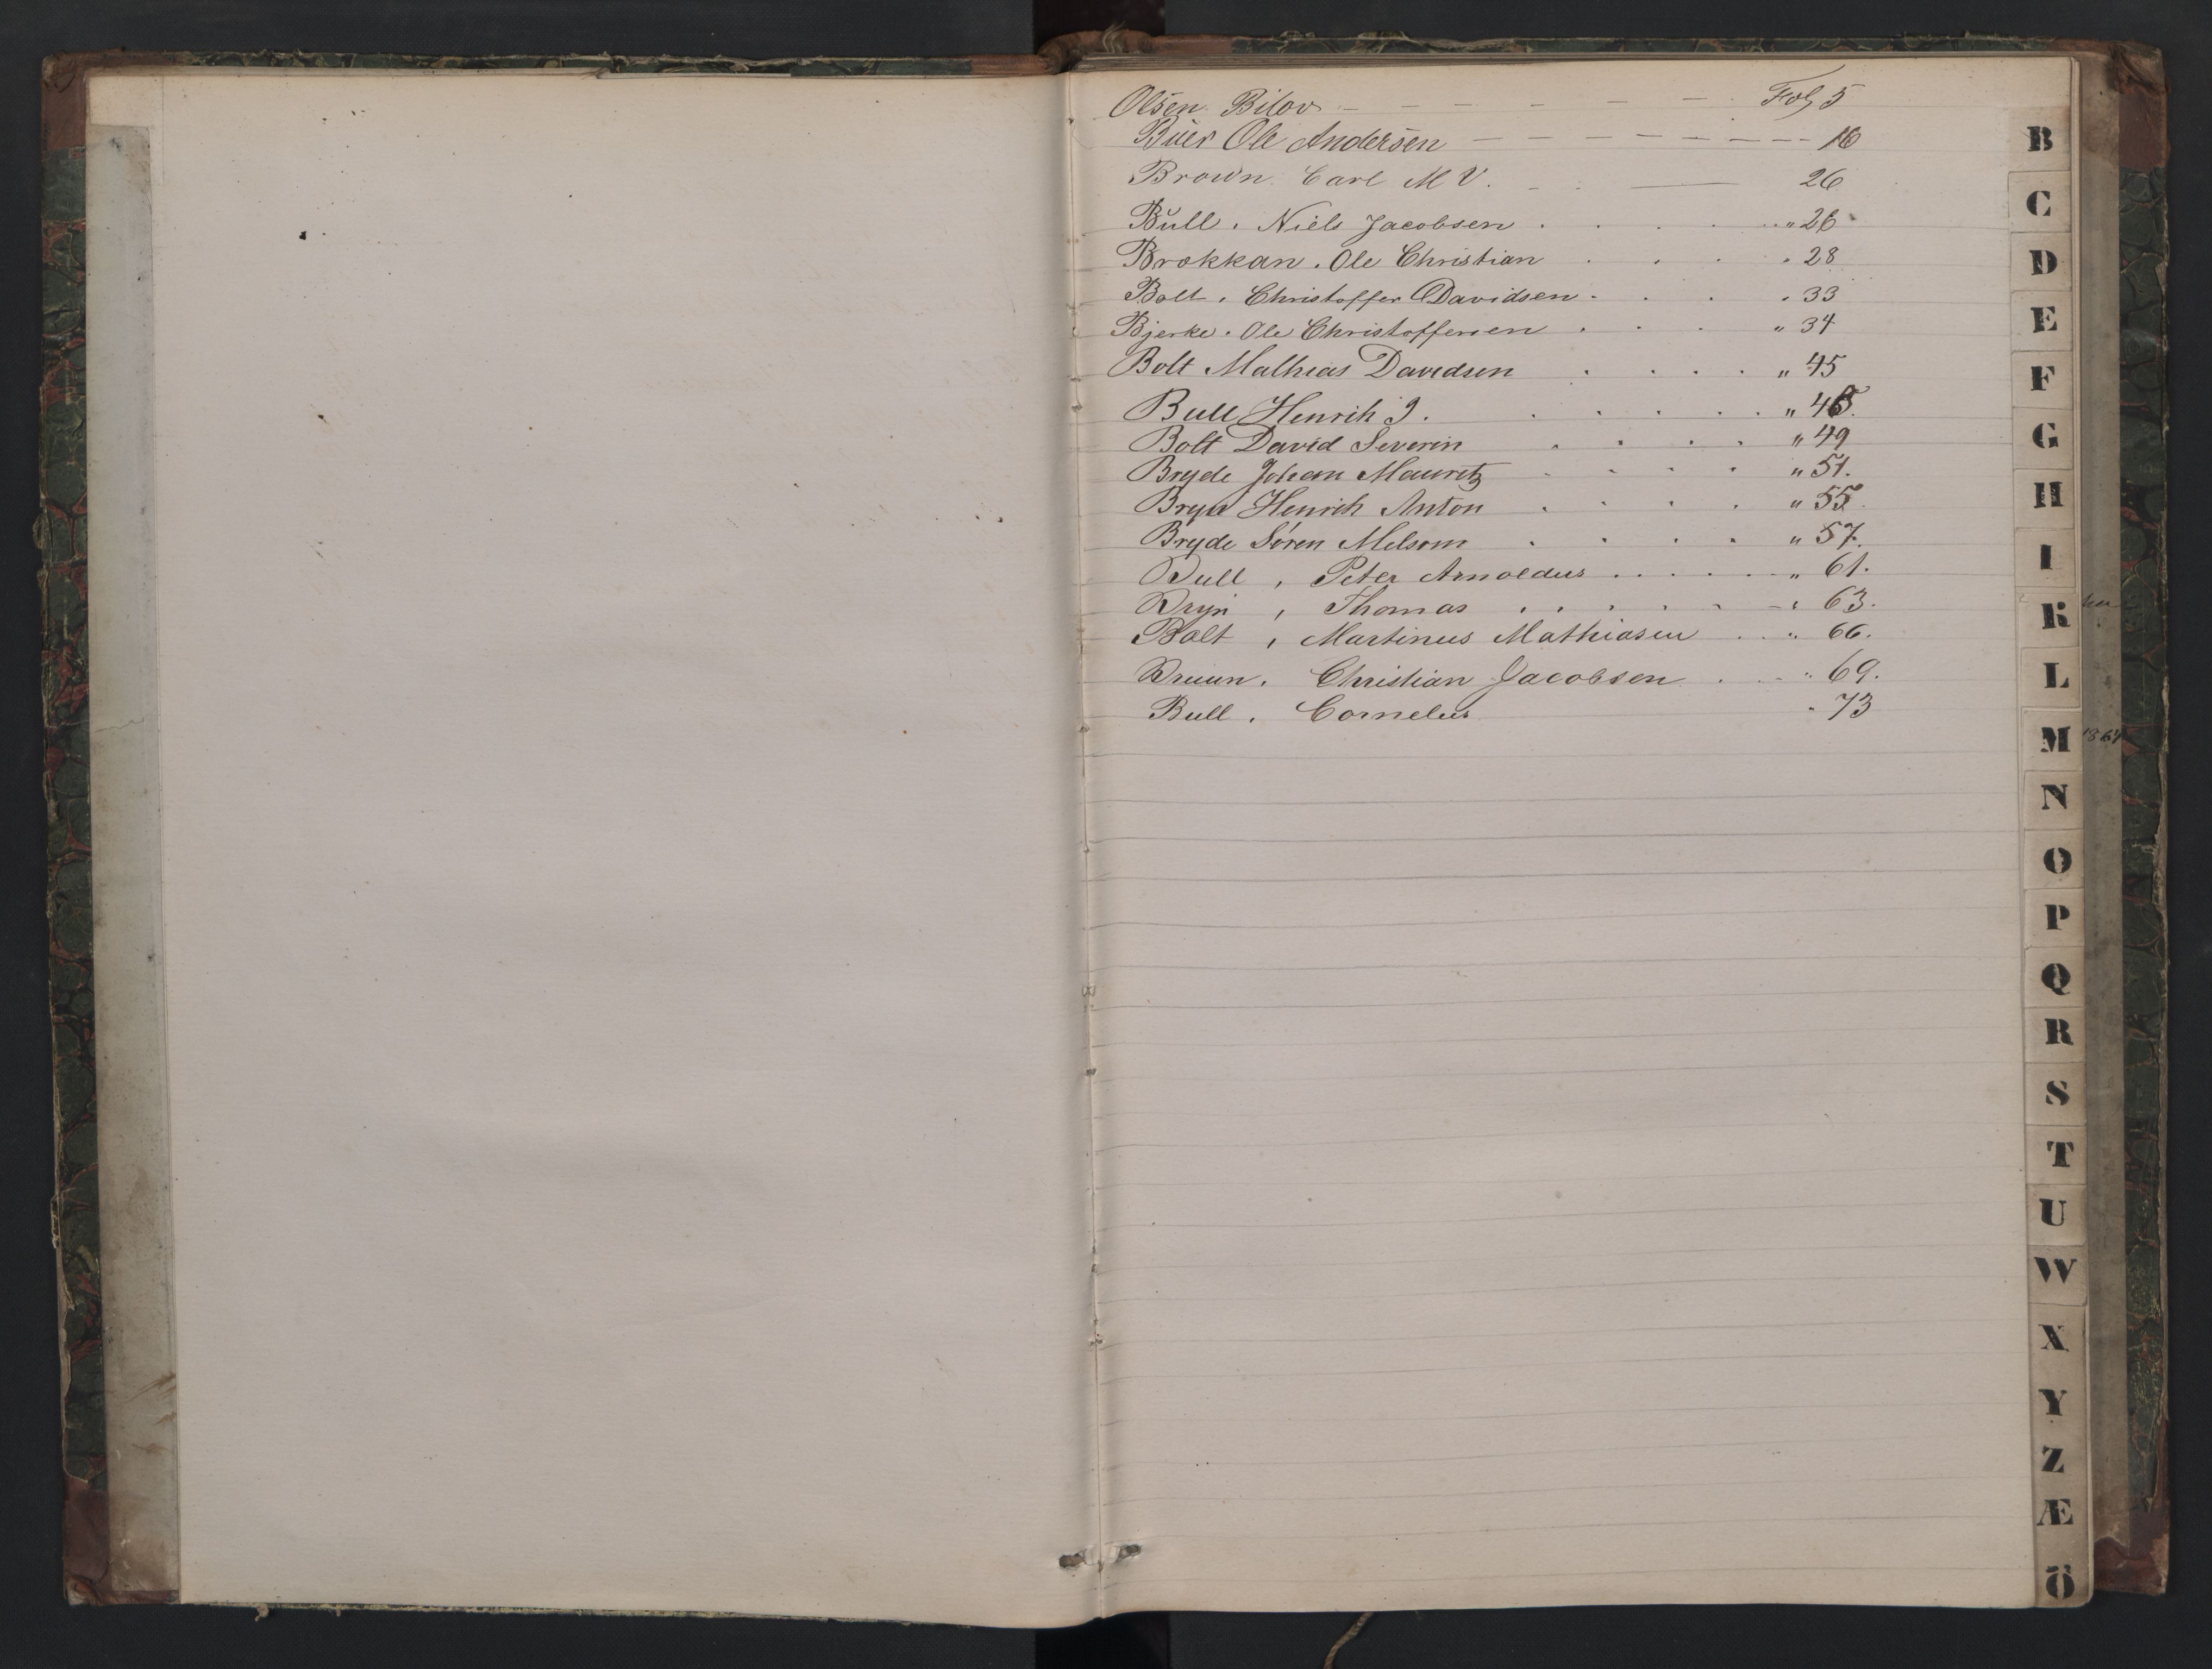 Olsen Bilov - - - - - Fol 5
Buer Ole Andersen - - - - - - - - - 16
Brown Carl M V. 26
Bŭll. Niels Jacobsen . . . . " 26
Brokkan. Ole Christian . . . . 28
Bolt. Christoffer Davidsen . . . . 33
Bjerke. Ole Christoffersen . . . " 34
Bolt Mathias Davidsen . . . . " 45
Bull Henrik J. . . . . . " 46.
Bolt David Severin . . . . " 49
Bryde Johan Mauritz . . . . " 51.
Bryn Henrik Anton . . . . " 55.
Bryde Sören Melsom . . . . " 57.
Bull, Peter Arnoldus . . . . . " 61.
Bryn, Thomas . . . . . . " 63.
Bolt, Martinus Mathiasen . . " 66.
Bruun. Christian Jacobsen . . " 69.
Bull. Cornelius " 73
B
C
D
E
F
G
H
I
K
L
M
1867
N
O
P
Q
R
S
T
U
W
X
Y
Z
Æ
Ö